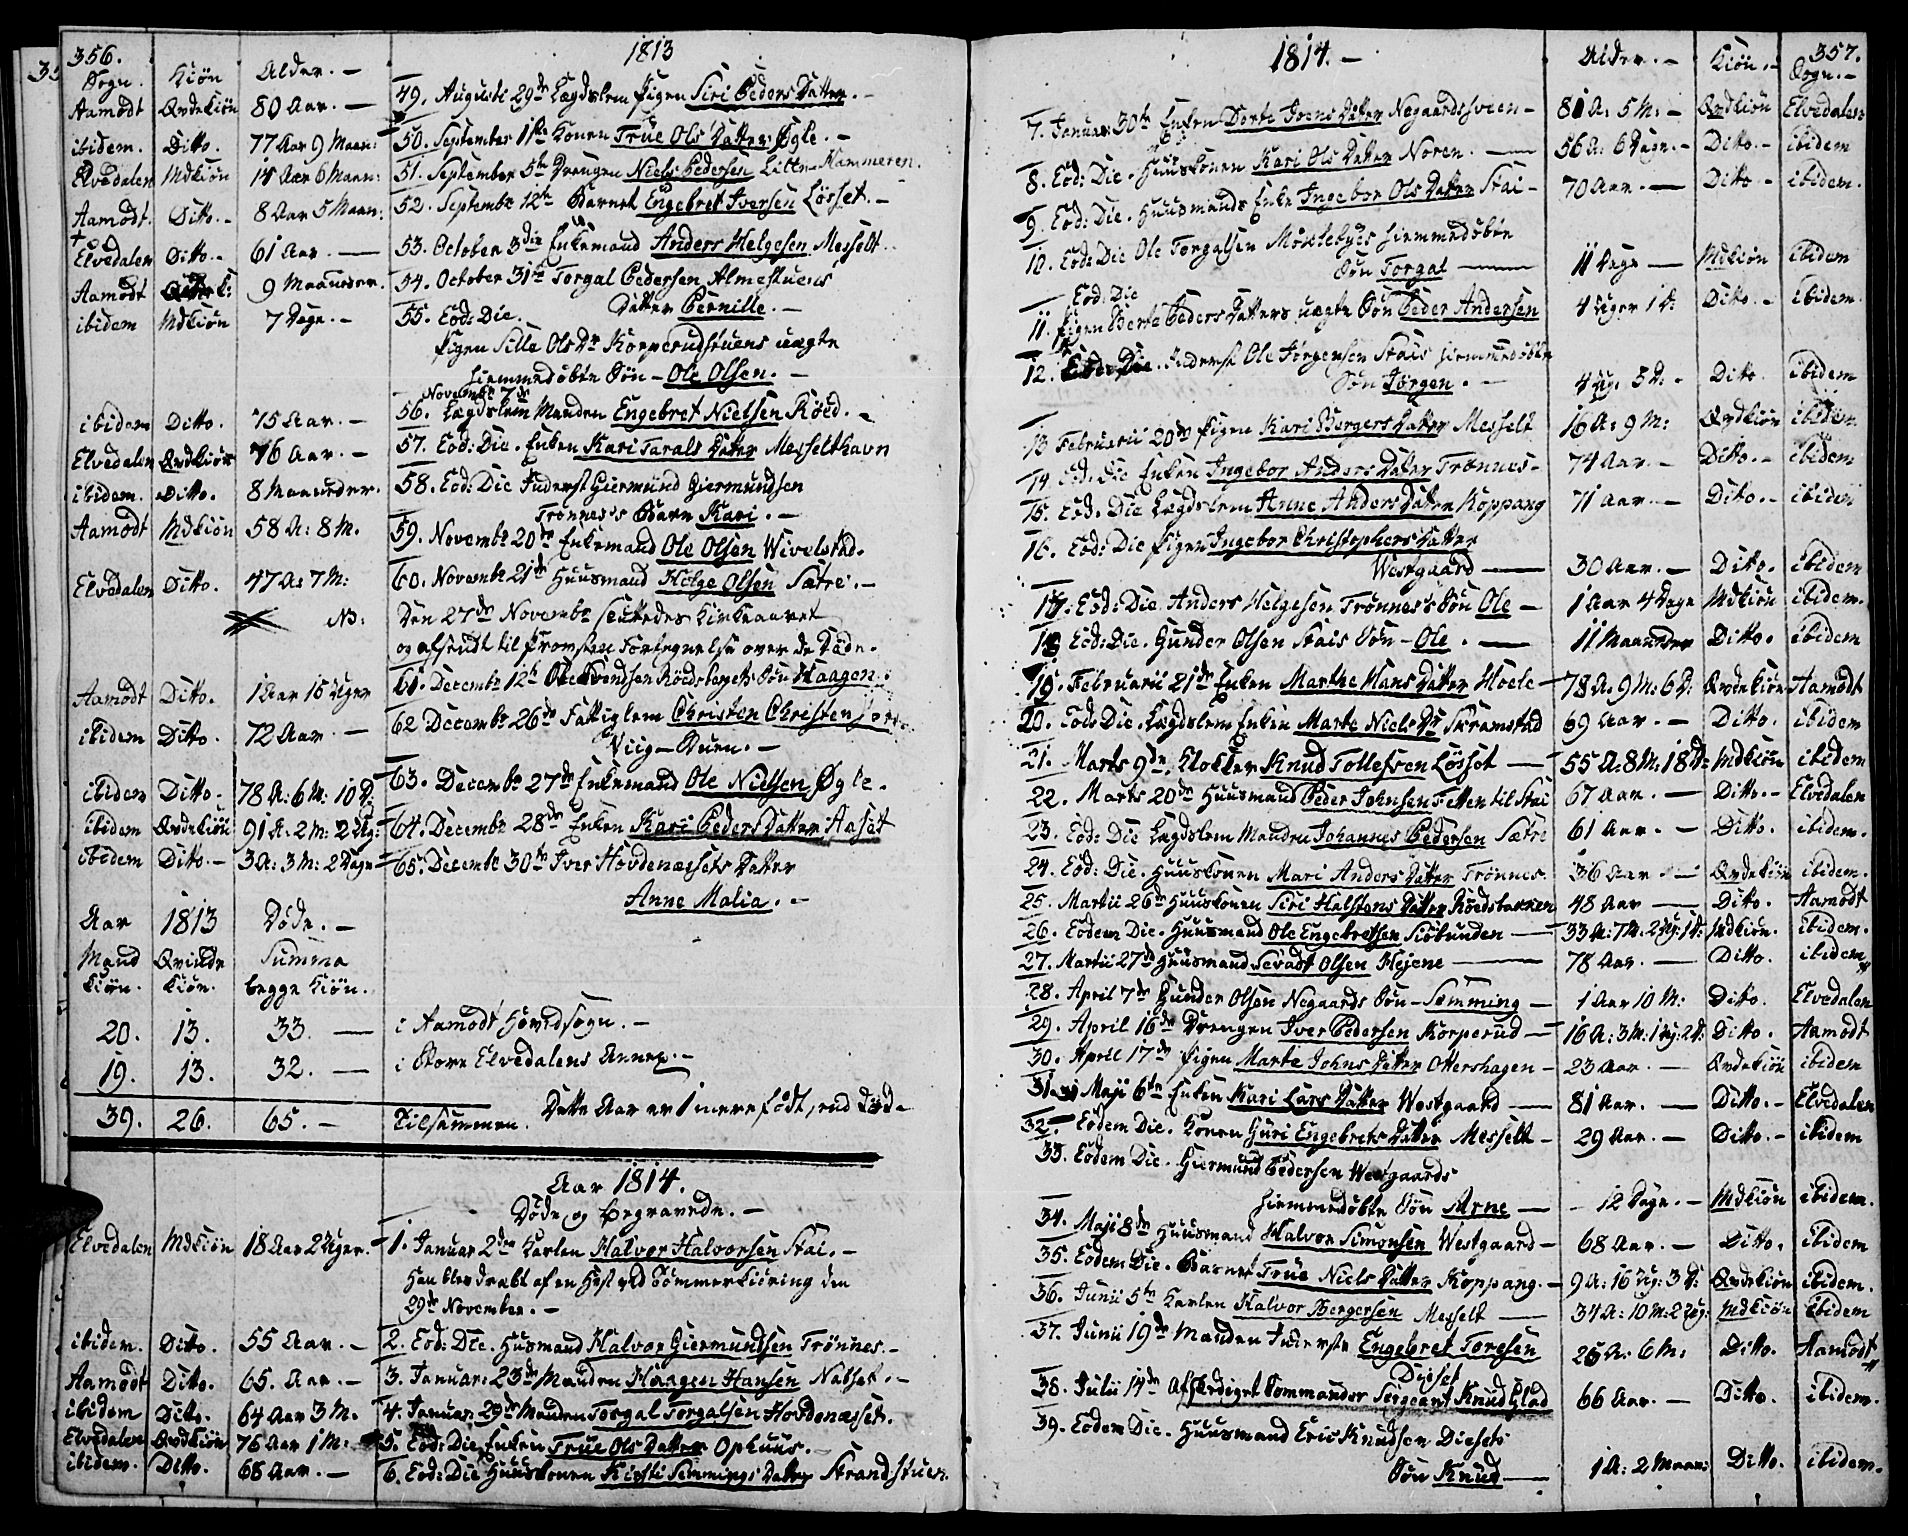 356.
1813
Sogn. Kiön Alder. -
Aamodt Qvdekiön 80 Aar. - 49. Augusti 29de Lægdslem Pigen Siri Peders Datter. -
ibidem. Ditto. 77 Aar 9 Maan: 50. September 1ste Konen True Ols Datter Øgle. -
Elvedalen Mdkiön 14 Aar 6 Maan: 51. September 5te Drengen Niels Pedersen Litle-Hammeren.
Aamodt. Ditto. - 8 Aar 5 Maan: 52. Septembr 12te Barnet Engebret Iversen Lösset. -
Elvedalen Ditto. - 61 Aar. - 53. October 3die Enkemand Anders Helgesen Messelt.
Aamodt 9 Maaneder. 54. October 31te Torgal Pedersen Almestuens
Datter Pernille. -
ibidem Mdkiön 7 Dage. - 55. Eod: Die.
Pigen Sille Ols Dr Korperudstuens uægte
hiemmedöbte Sön - Ole Olsen. -
Novembr 7de
ibidem Ditto. 75 Aar. - 56. Lægdslem Manden Engebret Nielsen Röed. -
Elvedalen Qvdkiön 76 Aar. - 57. Eod: Die. Enken Kari Tarals Datter Messelthavn
ibidem. Ditto. 8 Maaneder. 58. Eod: Die Inderst Giermund Giermundsen
Trönnes's Barn Kari. -
Aamodt Mdkiön 58 A: 8 M. 59. Novembr 20de Enkemand Ole Olsen Wivelstad.
Elvedalen Ditto. 47 A: 7 M: 60. Novembr 21de Huusmand Helge Olsen Sætre. -
NB: Den 27de Novembr sluttedes Kirkeaaret
og afsendt til Provsten Fortegnelse over de Döde.
Aamodt Ditto. 1 Aar 16 Uger 61. Decembr 12te Ole Svendsen Röedsbergets Sön Haagen.
ibidem Ditto. 72 Aar. - 62. Decembr 26de Fattiglem Christen Christensen
Viig-Buen. -
ibidem Ditto. 78 A: 6 M: 10 D: 63. Decembr 27de Enkemand Ole Nielsen Øgle.
ibidem Qvdekiön 91 A: 2 M: 2 Ug: 64. Decembr 28de Enken Kari Peders Datter Aaset
ibidem Ditto. - 3 A: 3 M: 2 Dage 65. Decembr 30te Iver Hovdenæsets Datter
Anne Malia. -
Aar 1813 Döde. -
Mand Qvinde Summa
Kiön. Kiön. begge Kiön.
20. 13. 33. - i Aamodt Hovedsogn. -
19. 13. 32. - i Store Elvedalens Annex. -
39. 26. 65. - Tilsammen. Dette Aar er 1 mere födt, end död.
Aar 1814.
Döde og begravede. -
Elvedalen Mdkiön 18 Aar 2 Uger. - 1. Januar 2den Karlen Halvor Halvorsen Stai. -
Han blev dræbt af en Hest ved Tömmerkiöring den
29de November. -
ibidem. Ditto. 55 Aar. - 2. Eod: Die. Husmand Halvor Giermundsen Trönnes. -
Aamodt Ditto. 65. Aar. - 3. Januar: 23de Manden Haagen Hansen Nabset. -
ibidem Ditto. 64 Aar 3 M. 4. Januar: 29de Manden Torgal Torgalsen Hovdenæsset.
Elvedalen Qvdkiön 76 Aar 1 M: 5. Eod: Die Enken True Ols Datter Ophuus. -
ibidem. Ditto. 68 Aar. - 6. Eod: Die Huuskonen Kirsti Semmings Datter Strandstuen.
1814. - Alder. - Kiön. - Sogn. -
357.
7. Januar: 30te Enken Dorte Joens Datter Negaardssveen - 81 A: 5 M: - Qvdkiön Elvedalen
8. Eod: Die. Huuskonen Kari Ols Datter Noren. - 56 A: 6 Dage. - Ditto. - ibidem
9. Eod: Die. Huusmands Enke Ingebor Ols Datter Stai - 70 Aar. - Ditto - ibidem.
10. Eod: Die Ole Torgalsen Mökleby's hiemmedöbte
Sön Torgal - 11 Dage - Mdkiön ibidem
Eod: Die
11. Pigen Berte Peders Datters uægte Sön Peder Andersen 4 Uger 1 D: Ditto. - ibidem.
12. Inderst Ole Jörgensen Stais hiemmedöbte
Sön Jörgen. - 4 Ug: 3 D: - Ditto. ibidem
13 Februarii 20de Pigen Kari Bergers Datter Messelt 16 A: 9 M: Qvdkiön ibidem
14. Eod: Die Enken Ingebor Anders Datter Trönnes - 74 Aar. - Ditto. - ibidem
15. Eod: Die Lægdslem Anne Anders Datter Koppang 71 Aar. - Ditto. - ibidem
16. Eod: Die Pigen Ingebor Christophers Datter
Westgaard - 30 Aar. - Ditto. ibidem
17. Eod: Die Anders Helgesen Trönnes's Sön Ole - 1 Aar 4 Dage Mdkiön ibidem.
18 Eod: Die. Gunder Olsen Stais Sön - Ole. - 11 Maaneder Ditto. ibidem
19. Februarii 21de Enken Marthe Hans Datter Hoele - 78 A: 9 M: 6 D: Qvdekiön Aamodt
20. Eod: Die. Lægdslem Enken Marte Niels Dr Skramstad 69 Aar. - Ditto. ibidem
21. Marts 9de. Klokker Knud Tollefsen Lösset - 55 A: 8 M: 18 D: Mdkiön ibidem
22. Marts 20de Huusmand Peder Johnsen Fetten til Stai 67 Aar. - Ditto. - Elvedalen
23. Eod: Die Lægdslem Manden Johannes Pedersen Sætre 61 Aar. - Ditto. ibidem.
24. Eod: Die. Huuskonen Mari Anders Datter Trönnes. 36 Aar. - Qvdekiön ibidem.
25. Martii 26de Huuskonen Siri Halstens Datter Röedsbakken 48 Aar - Ditto. Aamodt
26. Eodem Die. Huusmand Ole Engebretsen Siöbunden - 33 A: 7 M: 2 Ug: 1 D: Mdkiön. ibidem.
27. Martii 27de Huusmand Sevadt Olsen Plejene - 78 Aar. - Ditto. ibidem
28. April 7de Gunder Olsen Negaards Sön - Semming - 1 Aar 10 M: Ditto. Elvedalen
29. April 16de Drengen Iver Pedersen Korperud - 16 A: 3 M: 1 Ug: 2 D: Ditto. Aamodt
30. April 17de Pigen Marte Johns Datter Ottershagen - 23 Aar. - Qvdekiön ibidem
31. Maji 6te Enken Kari Lars Datter Westgaard - 81 Aar. - Ditto. - Elvedalen
32. Eodem Die. Konen Guri Engebrets Datter Messelt - 29 Aar. - Ditto. - ibidem
33. Eodem Die. Giermund Pedersen Westgaards
hiemmedöbte Sön Arne - 12 Dage. - Mdkiön ibidem.
34. Maji 8de Huusmand Halvor Simonsen Westgaard - 68 Aar. - Ditto. ibidem
35. Eodem Die. Barnet True Niels Datter Koppang. - 9 A: 16 Ug: 3 D: Qvdekiön ibidem.
36. Junii 5te Karlen Halvor Bergersen Messelt - 34 A: 10 M: 2 Ug: Mdkiön ibidem
37. Junii 19de Manden Inderste Engebret Toresen
Dieset 26 A: 6 M: Ditto. Aamodt
38. Julii 14de Afskediget Commandeer Sergeant Knud Glad 66 Aar. - Ditto. ibidem.
39. Eodem Die. Huusmand Eric Knudsen Diesets
Sön Knud - 1 A: 2 Maan: Ditto. ibidem.